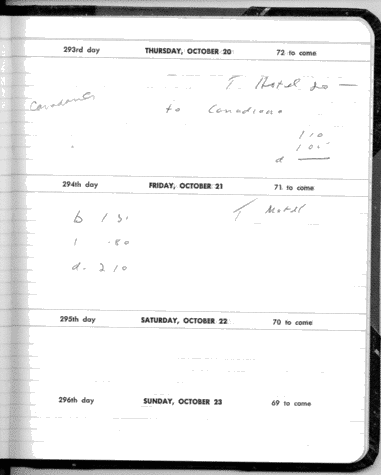 293rd day THURSDAY, OCTOBER 20 72 to come
T Motel 20 —
to Canadians
110
d
294th day FRIDAY, OCTOBER 21 71 to come
T Motel
b 13
1 .80
d. 210
295th day SATURDAY, OCTOBER 22 70 to come
296th day SUNDAY, OCTOBER 23 69 to come